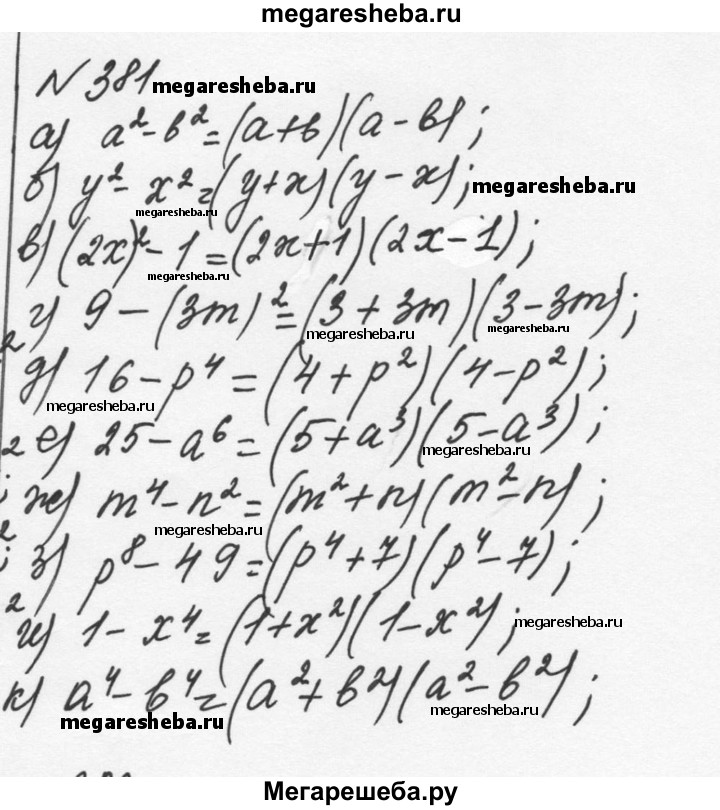 megaresheba.ru
№ 381 megaresheba.ru
а) a²-b²=(a+b)(a-b);
б) y²-x²=(y+x)(y-x); megaresheba.ru
megaresheba.ru
в) (2x)²-1=(2x+1)(2x-1);
megaresheba.ru
г) 9-(3m)²=(3+3m)(3-3m);
megaresheba.ru megaresheba.ru
2
д) 16-p⁴=(4+p²)(4-p²);
megaresheba.ru
2 е) 25-a⁶=(5+a³)(5-a³);
megaresheba.ru
; ж) m⁴-n²=(m²+n)(m²-n);
2 megaresheba.ru
; з) p⁸-49=(p⁴+7)(p⁴-7);
2
и) 1-x⁴=(1+x²)(1-x²); megaresheba.ru
к) a⁴-b⁴=(a²+b²)(a²-b²);
megaresheba.ru megaresheba.ru
Мегарешеба.ру